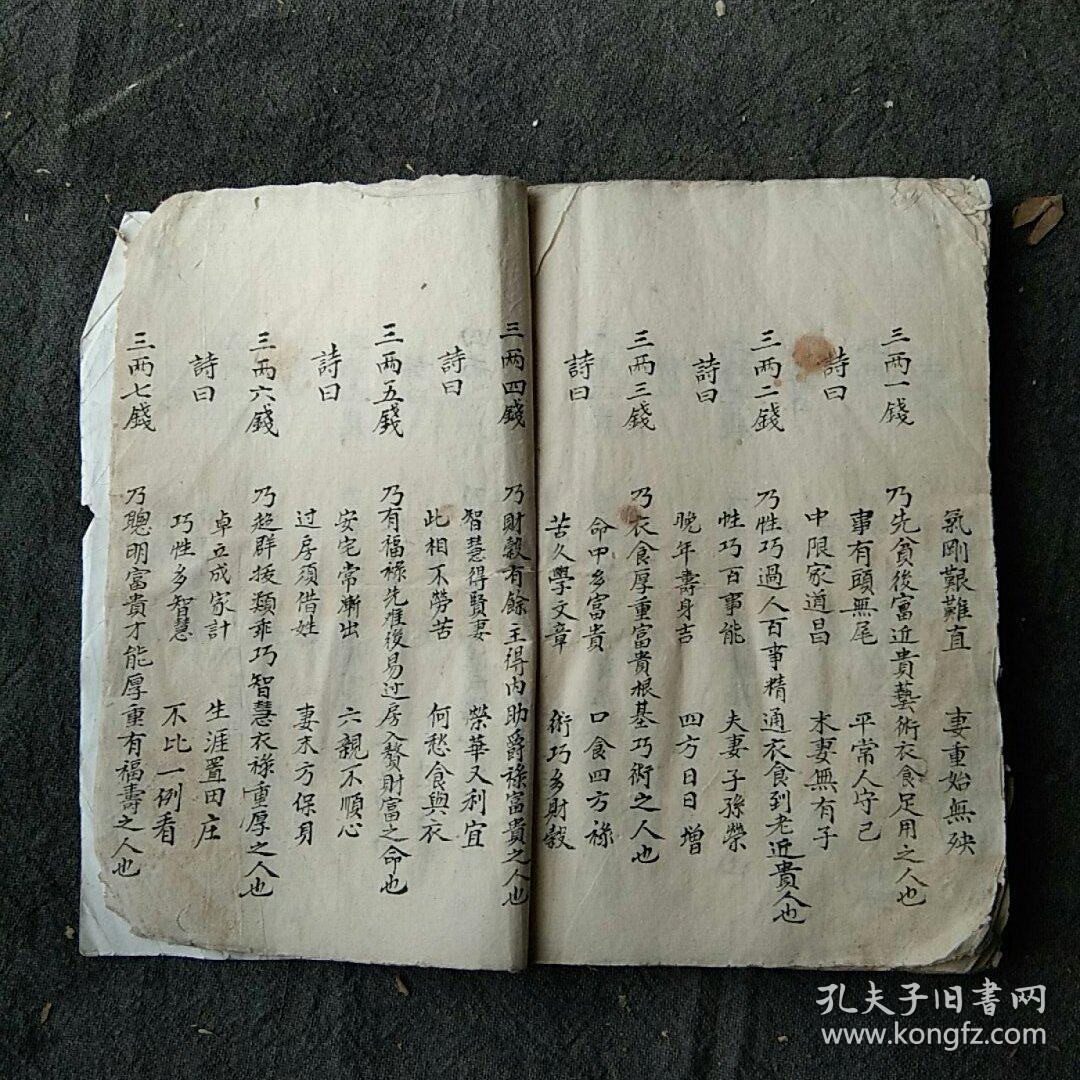 氣剛艱難直　妻重始無殃
三両一錢　乃先貧後富近貴藝術衣食足用之人也
詩曰　事有頭無尾　平常人守己
中限家道昌　末妻無有子
三両二錢　乃性巧過人百事精通衣食到老近貴人也
詩曰　性巧百事能　夫妻子孫榮
晚年壽身吉　四方日日增
三両三錢　乃衣食厚重富貴根基巧術之人也
詩曰　命中多富貴　口食四方祿
苦久學文章　術巧多財穀
三両四錢　乃財穀有餘主得內助爵祿富貴之人也
詩曰　智慧得賢妻　榮華又利宜
此相不勞苦　何愁食與衣
三両五錢　乃有福祿先难後易过房入贅財富之命也
詩曰　安宅常漸出　六親不順心
过房須借姓　妻禾方保身
三両六錢　乃超群拔類乖巧智慧衣祿重厚之人也
詩曰　卓立成家計　生涯置田庄
巧性多智慧　不比一例看
三両七錢　乃聰明富貴才能厚重有福壽之人也
孔夫子旧書网
www.kongfz.com